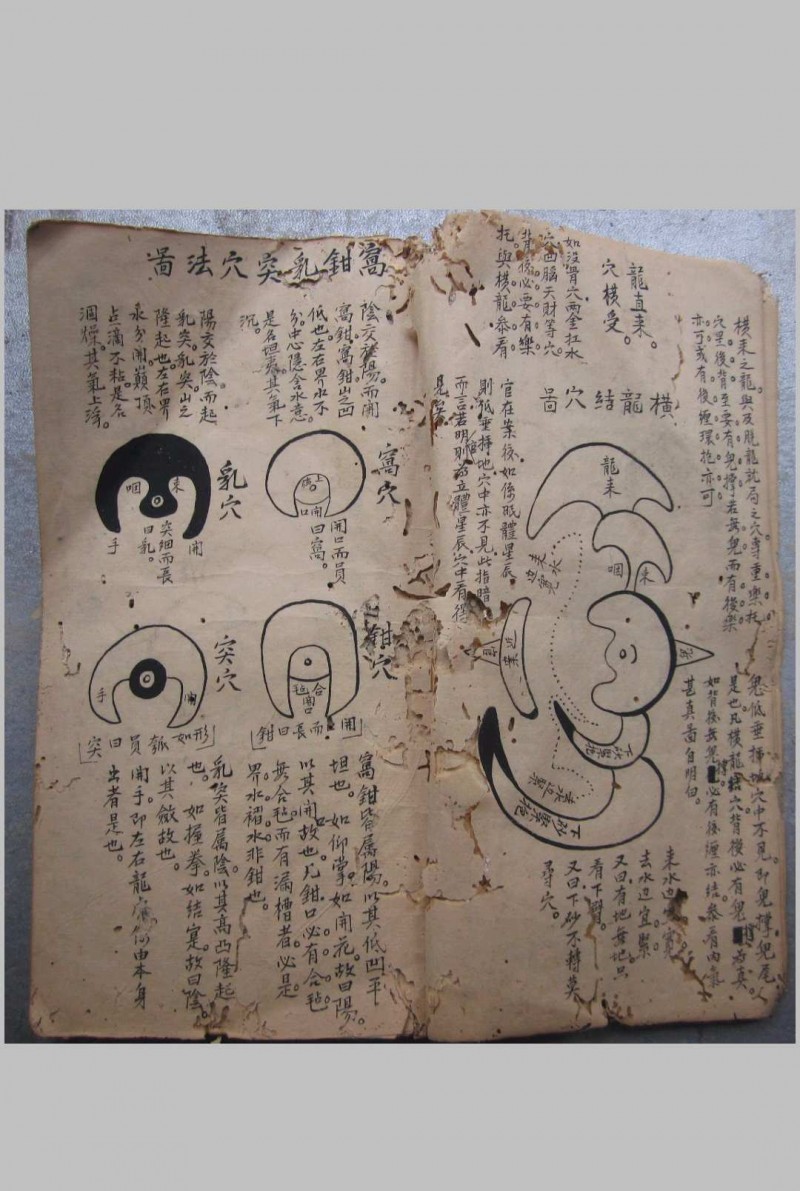 橫來之龍與及脫龍就局之穴專重樂托
穴星後背至要有鬼撐若無鬼而有後樂
亦可或有後纏環抱亦可
鬼低垂揷地穴中不見即鬼撐鬼尾
是也凡橫龍結穴背後必有鬼撐為真
如背後無鬼撐必有後纏亦結參看內氣
甚真圖自明白
龍直來。
穴橫受。
如沒骨穴兩金扛水
穴凹腦天財等穴
背後必要有樂
托與橫龍參看
橫龍結穴圖
官在案後如係眠體星辰
則低垂揷地穴中亦不見此指暗
而言若明則為立體星辰穴中看得
見
龍來
來
咽
近案
下砂緊抱
來水边宜寬
去水边宜緊
又曰有地無地只
看下臂
又曰下砂不轉莫
尋穴。
窩鉗乳突穴法圖
陰交於陽而開
窩鉗窩鉗山之凹
低也左右界水不
分中心隱含水意
是名坦囊其氣下
沉。
陽交於陰而起
乳突。乳突山之
隆起也左右界
水分開巔頂
点滴不粘是名
涸燥。其氣上浮。
窩穴
開口而員
曰窩。
開口
乳穴
來
咽
突細而長
曰乳。
開
手
鉗穴
合毡
開而長曰鉗
突穴
開
手
形如瓠員曰突
窩鉗皆属陽。以其低凹平
坦也。如仰掌如開花。故曰陽。
以其開故也凡鉗口必有合毡
無合毡而有漏槽者。必是
界水褶水非鉗也。
乳突皆属陰。以其高凸隆起
也。如握拳。如結寔。故曰陰。
以其斂故也。
開手。即左右龍虎仍由本身
出者是也。